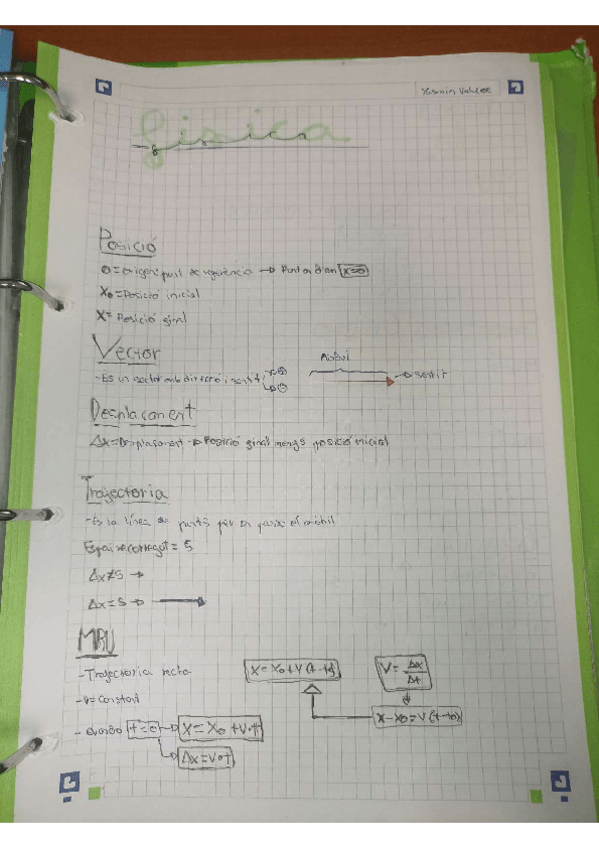 física
Posició
O = origen/punt de referència → Punt on x=0
X₀ = Posició inicial
X = Posició final
Vector
Mòdul
- És un vector amb direcció i sentit ⊕ ⊖
→ sentit
Desplaçament
Δx = Desplaçament → Posició final menys posició inicial
Trajectoria
- És la línea de punts per on passa el mòbil
Espai recorregut = S
Δx≠S →
Δx = S →
MRU
- Trajectoria recta
X = X₀ + V(t-t₀)
V = Δx/Δt
- V = Constant
X - X₀ = V(t-t₀)
- cuando t=0 → X = X₀ + V·t
Δx = V·t